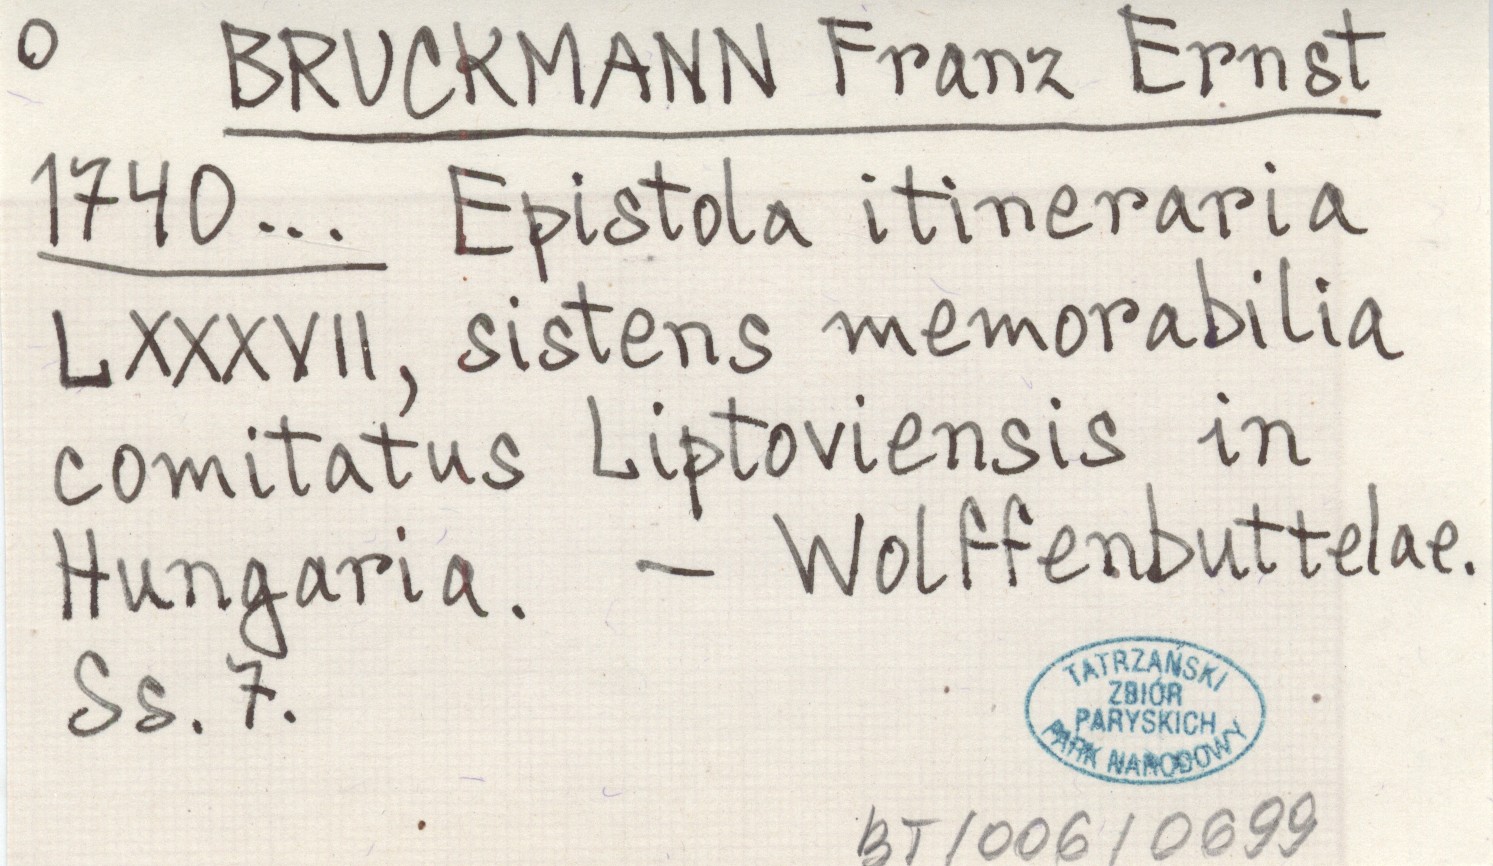 O BRUCKMANN Franz Ernst
1740... Epistola itineraria
LXXXVII, sistens memorabilia
comitatus Liptoviensis in
Hungaria. – Wolffenbuttelae.
Ss. 7.
TATRZAŃSKI
ZBIÓR
PARYSKICH
PARK NARODOWY
BT/006/0699